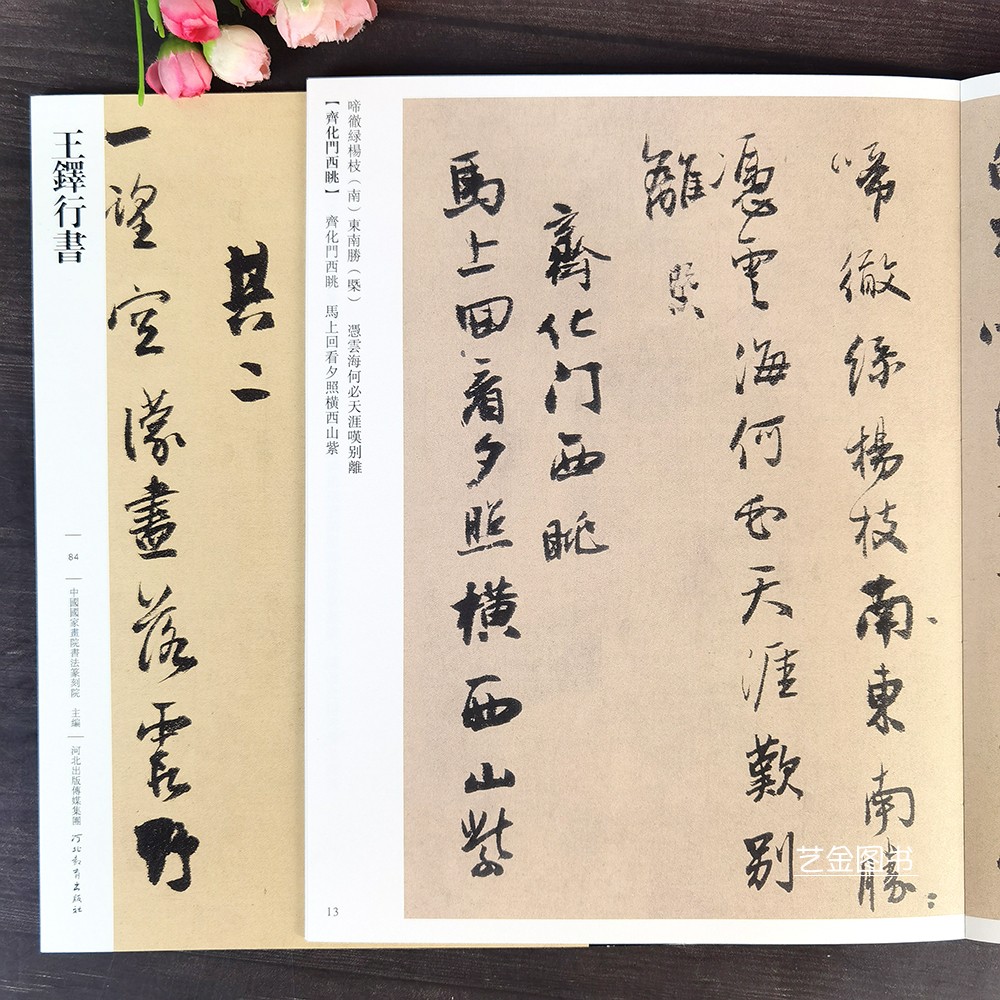 王鐸行書
84
中國國家畫院書法篆刻院 主編
河北出版傳媒集團
河北教育出版社
其二
一望空濛畫落雲野
啼徹緑楊枝（南）東南勝（槩） 憑雲海何必天涯嘆别離
【齊化門西眺】 齊化門西眺 馬上回看夕照橫西山紫
13
啼徹緑楊枝南東南勝
憑雲海何必天涯歎别
離 槩
齊化门西眺
馬上回看夕照橫西山紫
艺金图书